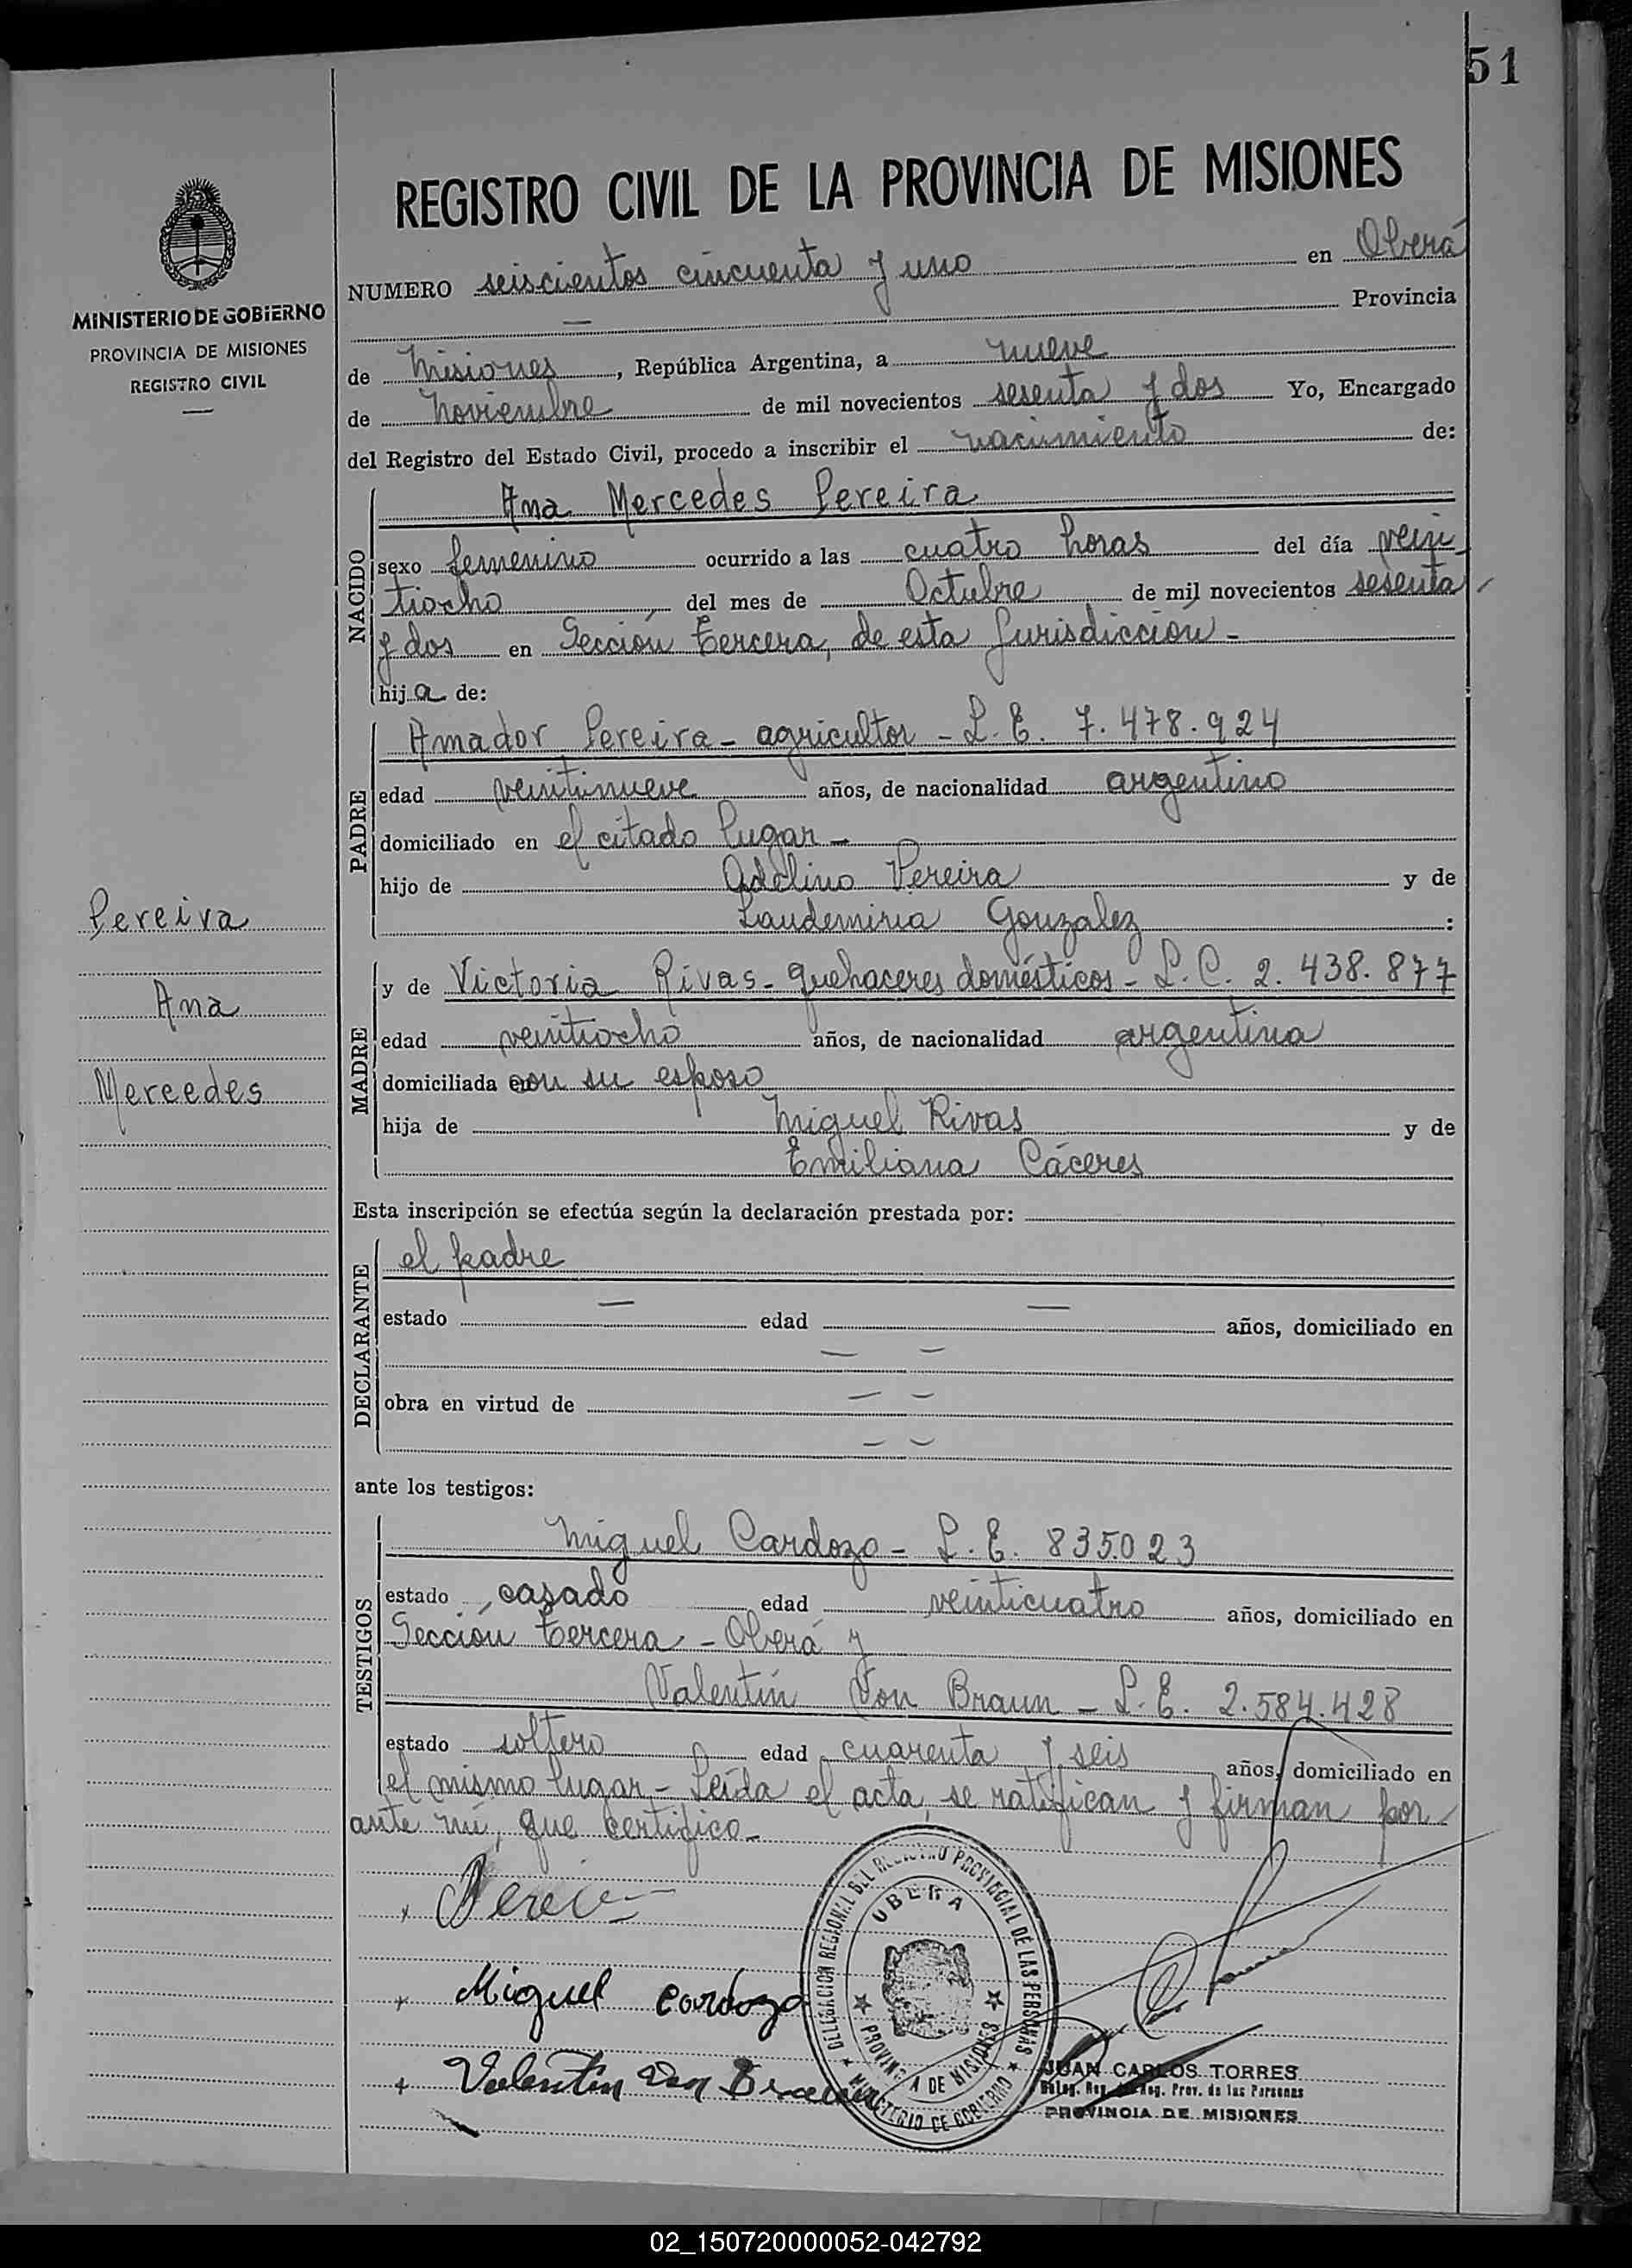 51
REGISTRO CIVIL DE LA PROVINCIA DE MISIONES
MINISTERIO DE GOBIERNO
PROVINCIA DE MISIONES
REGISTRO CIVIL
NUMERO seiscientos cincuenta y uno en Oberá
— Provincia
de Misiones, República Argentina, a nueve
de Noviembre de mil novecientos sesenta y dos Yo, Encargado
del Registro del Estado Civil, procedo a inscribir el nacimiento de:
NACIDO
Ana Mercedes Pereira
sexo femenino ocurrido a las cuatro horas del día vein
tiocho del mes de Octubre de mil novecientos sesenta
y dos en Sección tercera, de esta Jurisdicción -
hija de:
PADRE
Amador Pereira - agricultor - L. E. 7.478.924
edad veintinueve años, de nacionalidad argentino
domiciliado en el citado lugar -
hijo de Adelino Pereira y de
Laudemiria Gonzalez :
Pereira
Ana
Mercedes
MADRE
y de Victoria Rivas - quehaceres domésticos - L. C. 2.438.877
edad veintiocho años, de nacionalidad argentina
domiciliada con su esposo
hija de Miguel Rivas y de
Emiliana Cáceres
Esta inscripción se efectúa según la declaración prestada por:
DECLARANTE
el padre
estado — edad — años, domiciliado en
— —
obra en virtud de — —
— —
ante los testigos:
TESTIGOS
Miguel Cardozo - L. E. 835.023
estado casado edad veinticuatro años, domiciliado en
Sección tercera - Oberá y
Valentín Von Braun - L. E. 2.584.428
estado soltero edad cuarenta y seis años, domiciliado en
el mismo lugar - Leída el acta, se ratifican y firman por
ante mí, que certifico -
Miguel Cardozo
Valentin Von Braun
DELEGACION REGIONAL DEL REGISTRO PROVINCIAL DE LAS PERSONAS
OBERA
PROVINCIA DE MISIONES
MINISTERIO DE GOBIERNO
JUAN CARLOS TORRES
Deleg. Reg. del Reg. Prov. de las Personas
PROVINCIA DE MISIONES
02_150720000052-042792